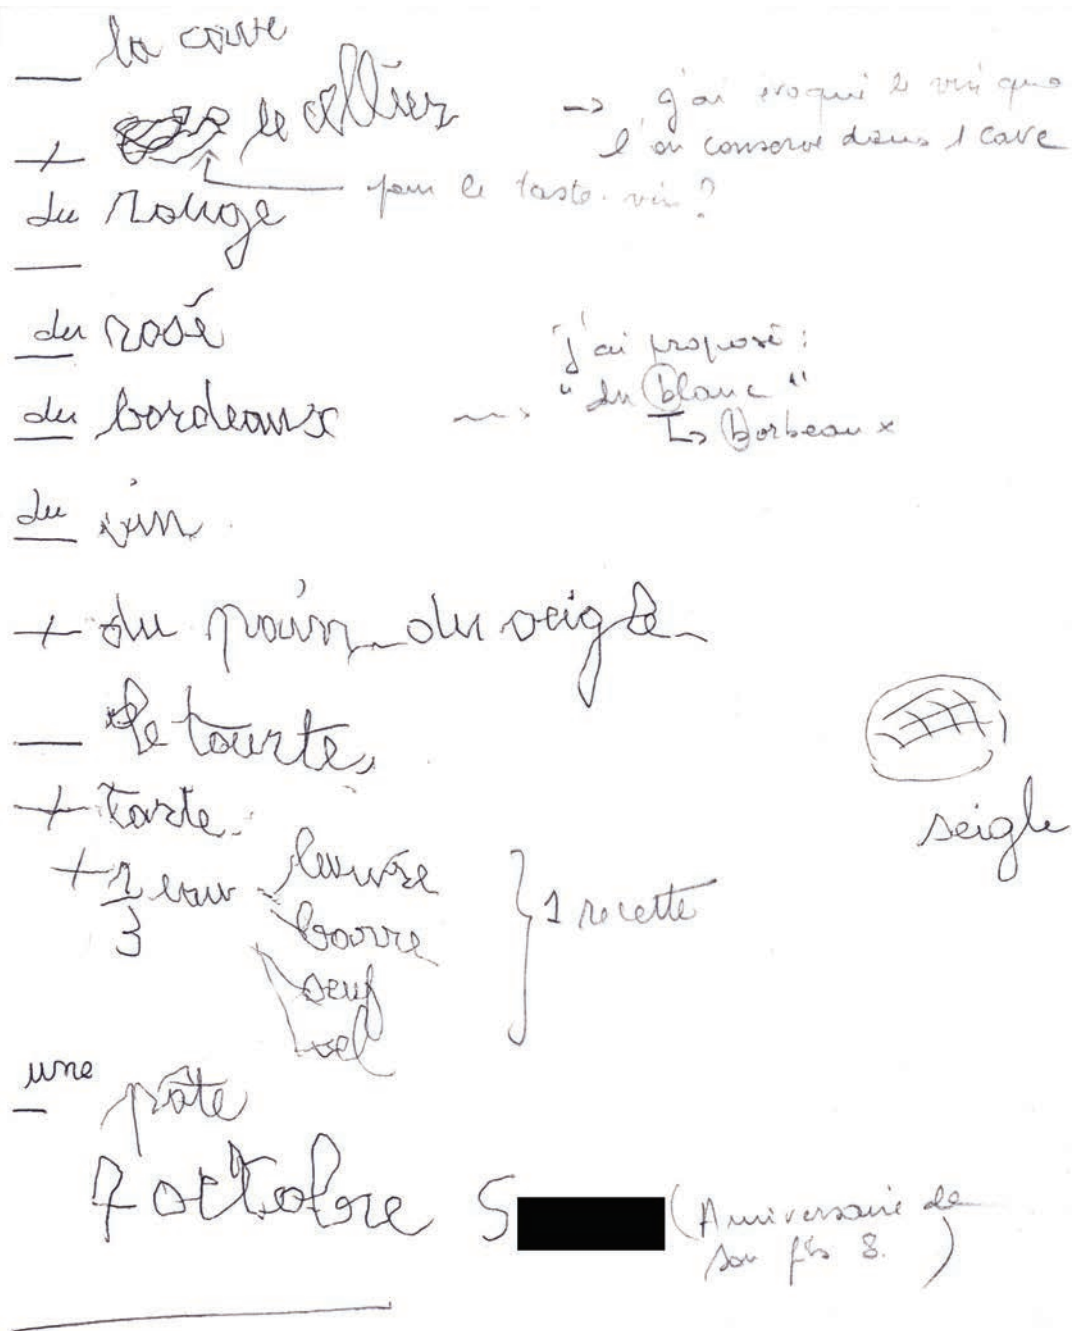 — la cave
+ le cellier → j'ai évoqué le vin que
l'on conserve dans 1 cave
pour le taste-vin ?
du rouge
—
du rosé
j'ai proposé :
du bordeaux → "du blanc"
↳ Borbeaux
du vin
+ du pain du seigle
— le tourte
+ tarte
seigle
+ 1/3 eau beurre
} 1 recette
oeuf
sel
une pâte
7 octobre S (Anniversaire de
son fils S.)